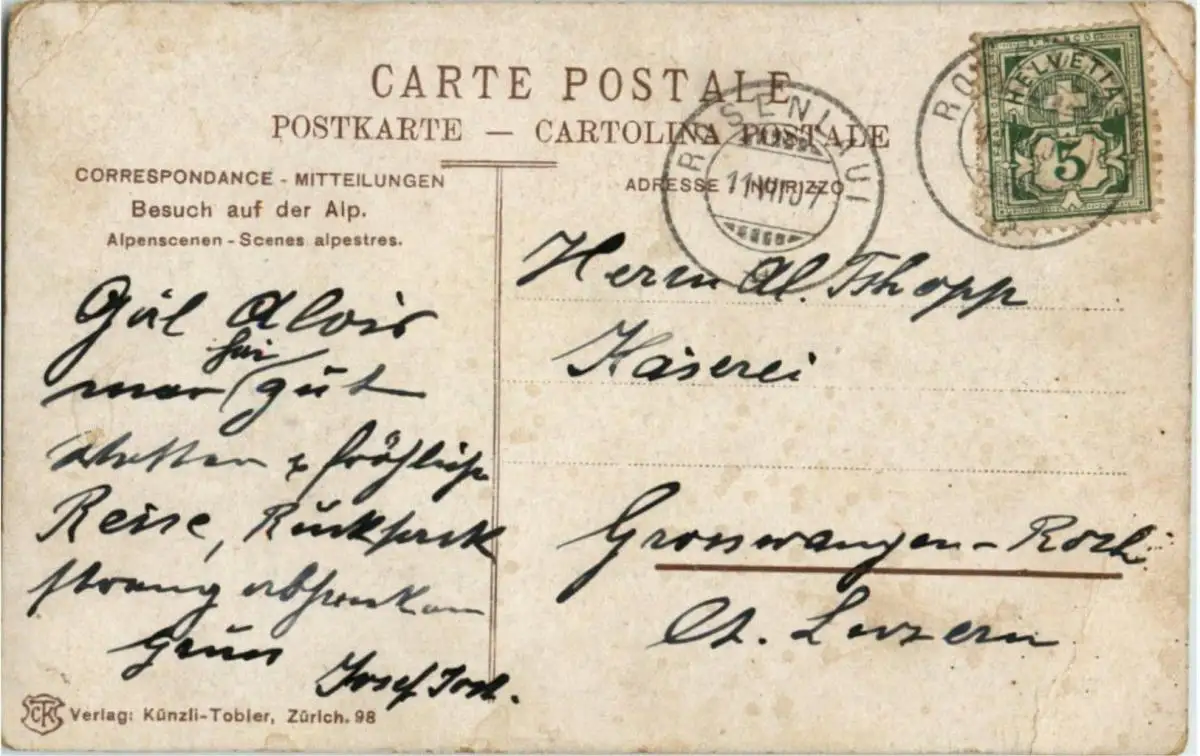 CARTE POSTALE
POSTKARTE — CARTOLINA POSTALE
CORRESPONDANCE - MITTEILUNGEN
Besuch auf der Alp.
Alpenscenen - Scenes alpestres.
ADRESSE INDIRIZZO
ROSENLAUI
11 VII 07
RO
HELVETIA
FRANCO
5
Alois
gut
fröhliche
Reise, Rucksack
streng
Gruss
Josef
Herrn Al. Tschopp
Käserei
Grosswangen - Roth
Ct. Luzern
CTK Verlag: Künzli-Tobler, Zürich. 98